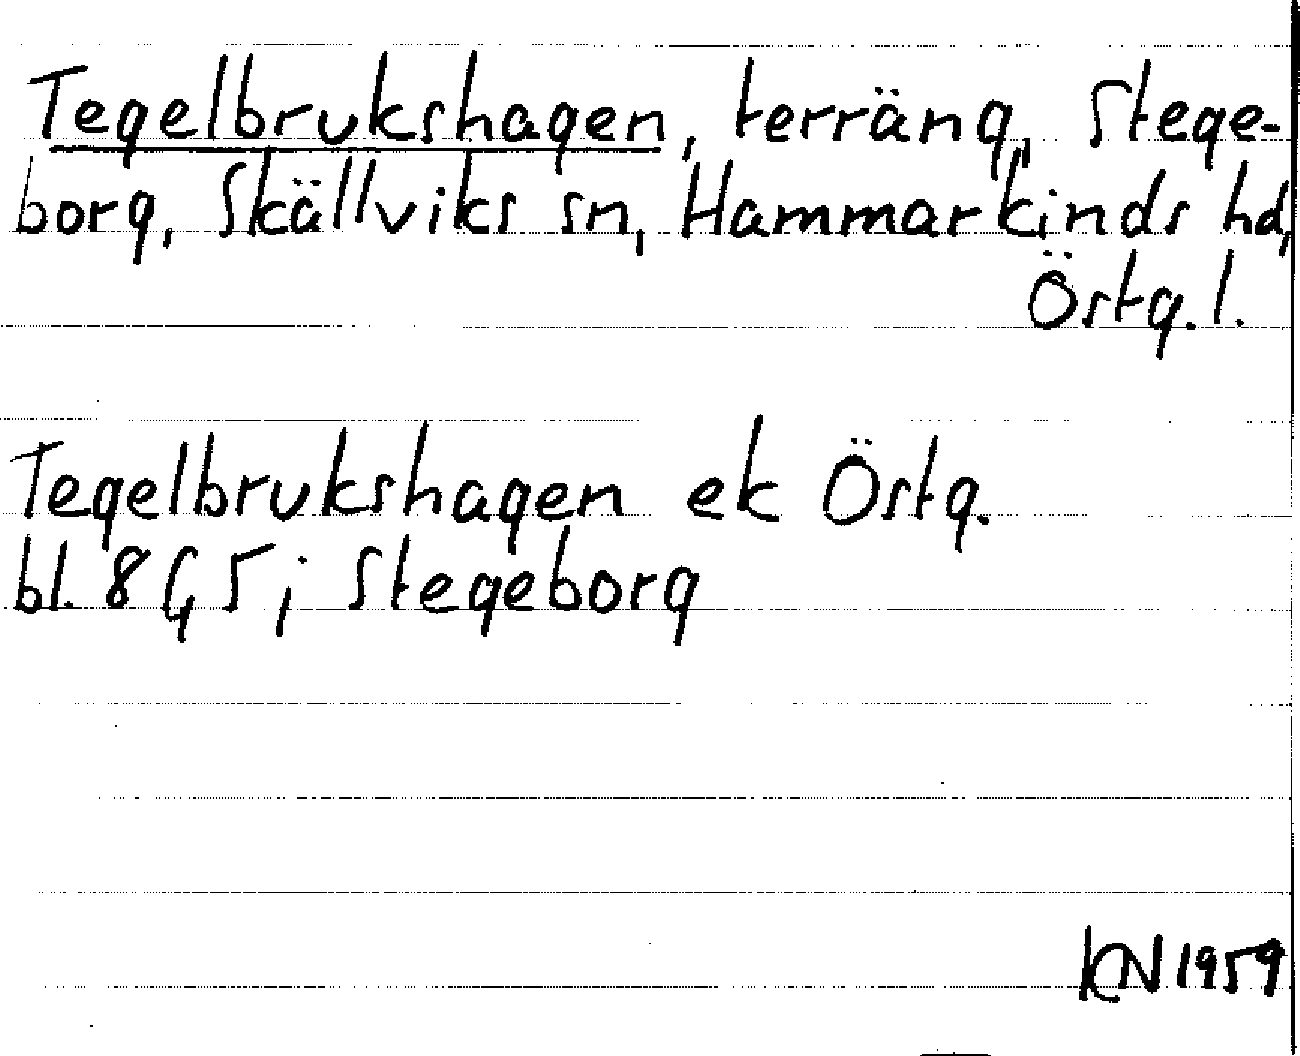 Tegelbrukshagen, terräng, Stege-
borg, Skällviks sn, Hammarkinds hd,
Östg. l.
Tegelbrukshagen ek Östg.
bl. 8G5; Stegeborg
KN 1959